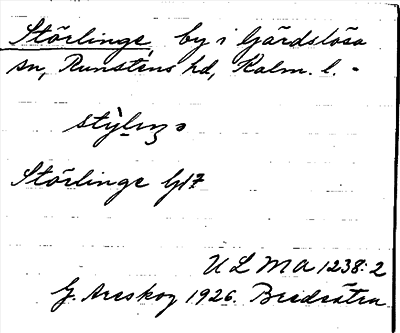 Störlinge, by i Gärdslösa
sn, Runstens hd, Kalm. l.
Störlinge G17
ULMA 1238:2
G. Areskog 1926. Bredsätra